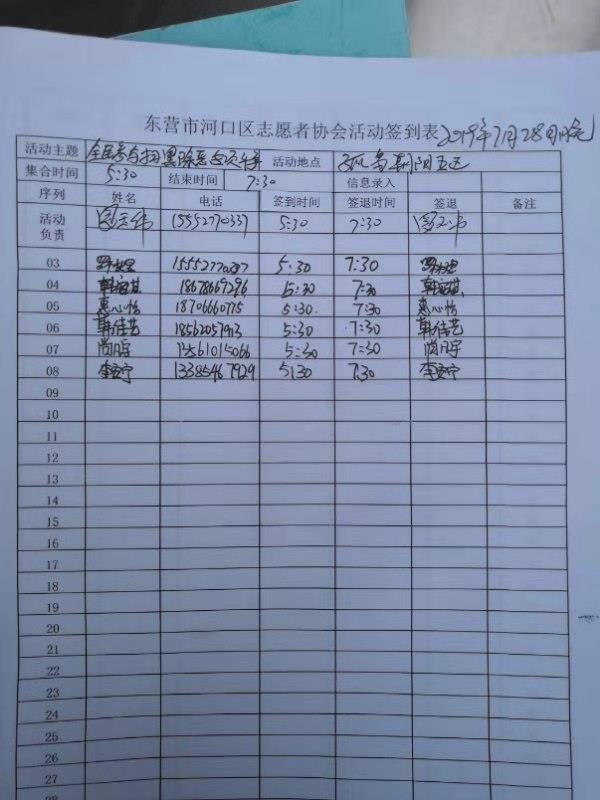 东营市河口区志愿者协会活动签到表 2019年7月28日
活动主题 全民参与扫黑除恶 活动地点 孤岛 五区
集合时间 5:30 结束时间 7:30 信息录入
序列 姓名 电话 签到时间 签退时间 签退 备注
活动负责 15552770337 5:30 7:30
03 15552770337 5:30 7:30
04 18678669296 5:30 7:30
05 惠心怡 18706660775 5:30 7:30 惠心怡
06 韩佳艺 18562057913 5:30 7:30 韩佳艺
07 13561015066 5:30 7:30
08 13385467929 5:30 7:30
09
10
11
12
13
14
15
16
17
18
19
20
21
22
23
24
25
26
27
28